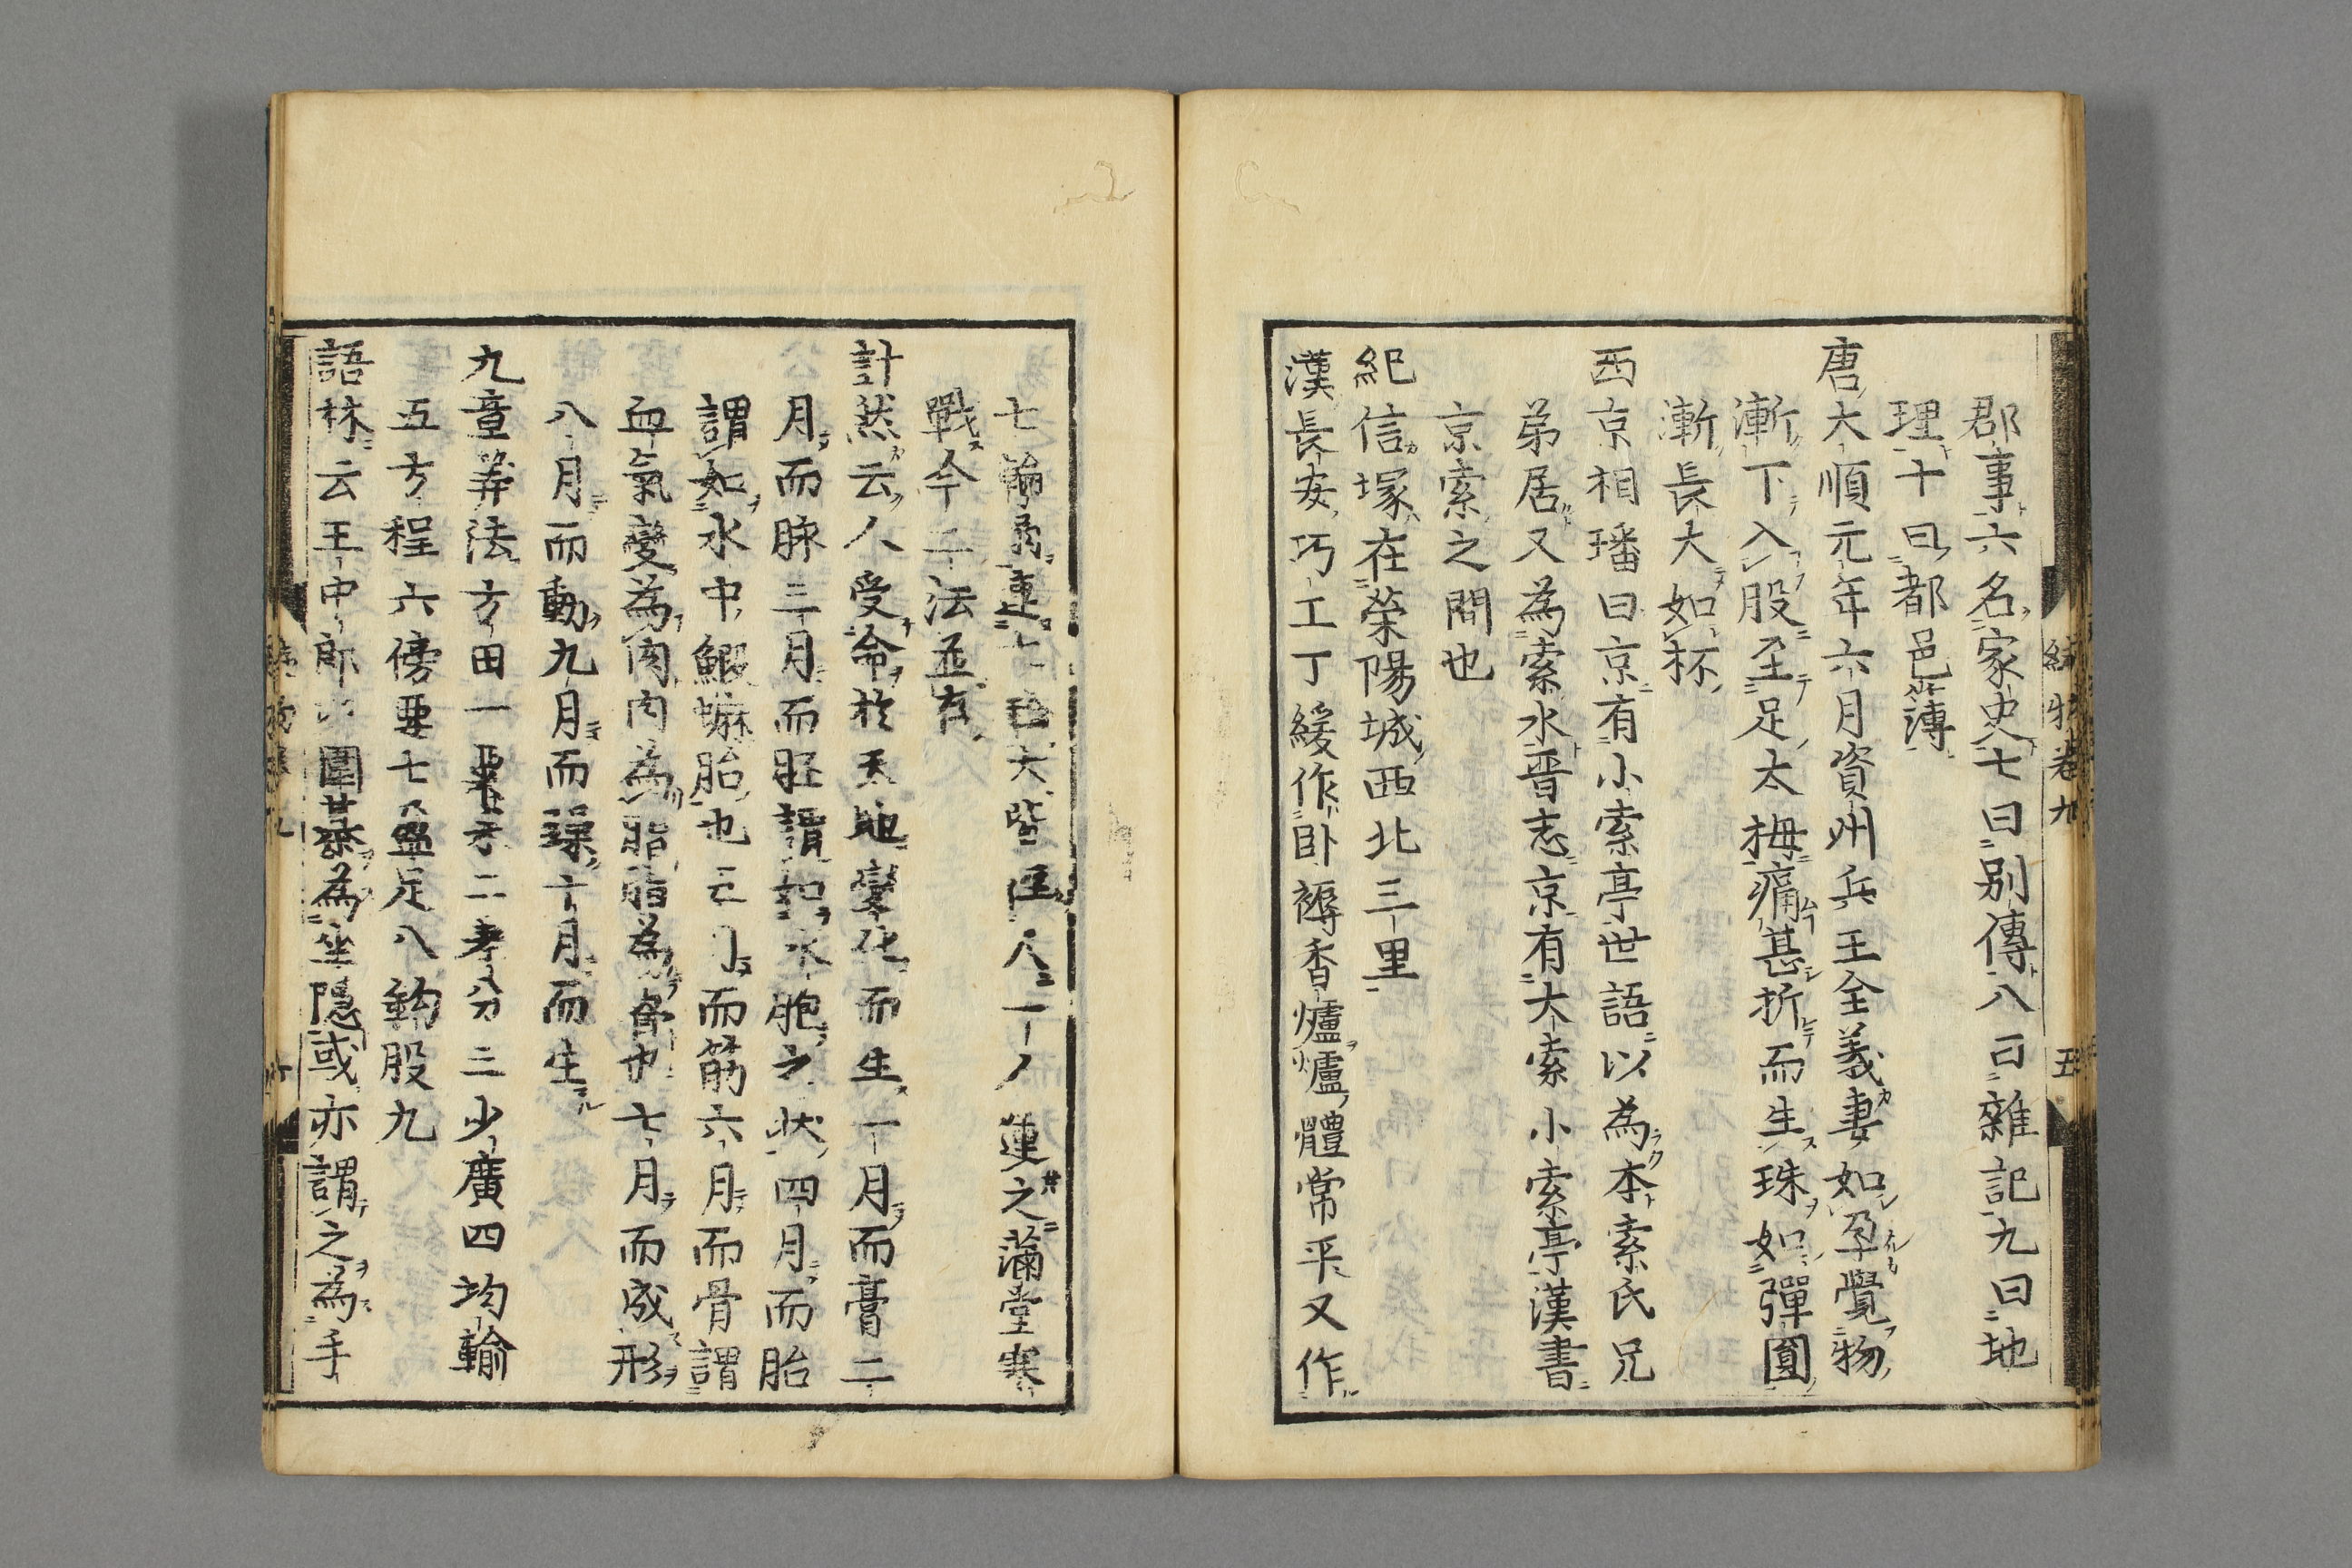 郡事六名家史七曰別傳八曰雜記九曰地
理十曰都邑簿
唐大順元年六月資州兵王全義妻如孕覺物
漸下入股至足太拇痛甚折而生珠如彈圓
漸長大如杯
西京相璠曰京有小索亭世語以為本索氏兄
弟居又為索水晉志京有大索小索亭漢書
京索之間也
紀信塚在榮陽城西北三里
漢長安巧工丁緩作臥褥香爐爐體常平又作
續博物卷九
五
七輪扇連七輪大皆徑人一人運之滿堂寒
戰今二法並有
計然云人受命於天地變化而生一月而膏二
月而脉三月而胚謂如水胞之狀四月而胎
謂如水中蝦蟆胎也五月而筋六月而骨謂
血氣變為肉肉為脂脂為骨也七月而成形
八月而動九月而躁十月而生
九章筭法方田一粟米二衰分三少廣四均輸
五方程六傍要七盈足八鈎股九
語林云王中郎以圍棊為坐隱或亦謂之為手